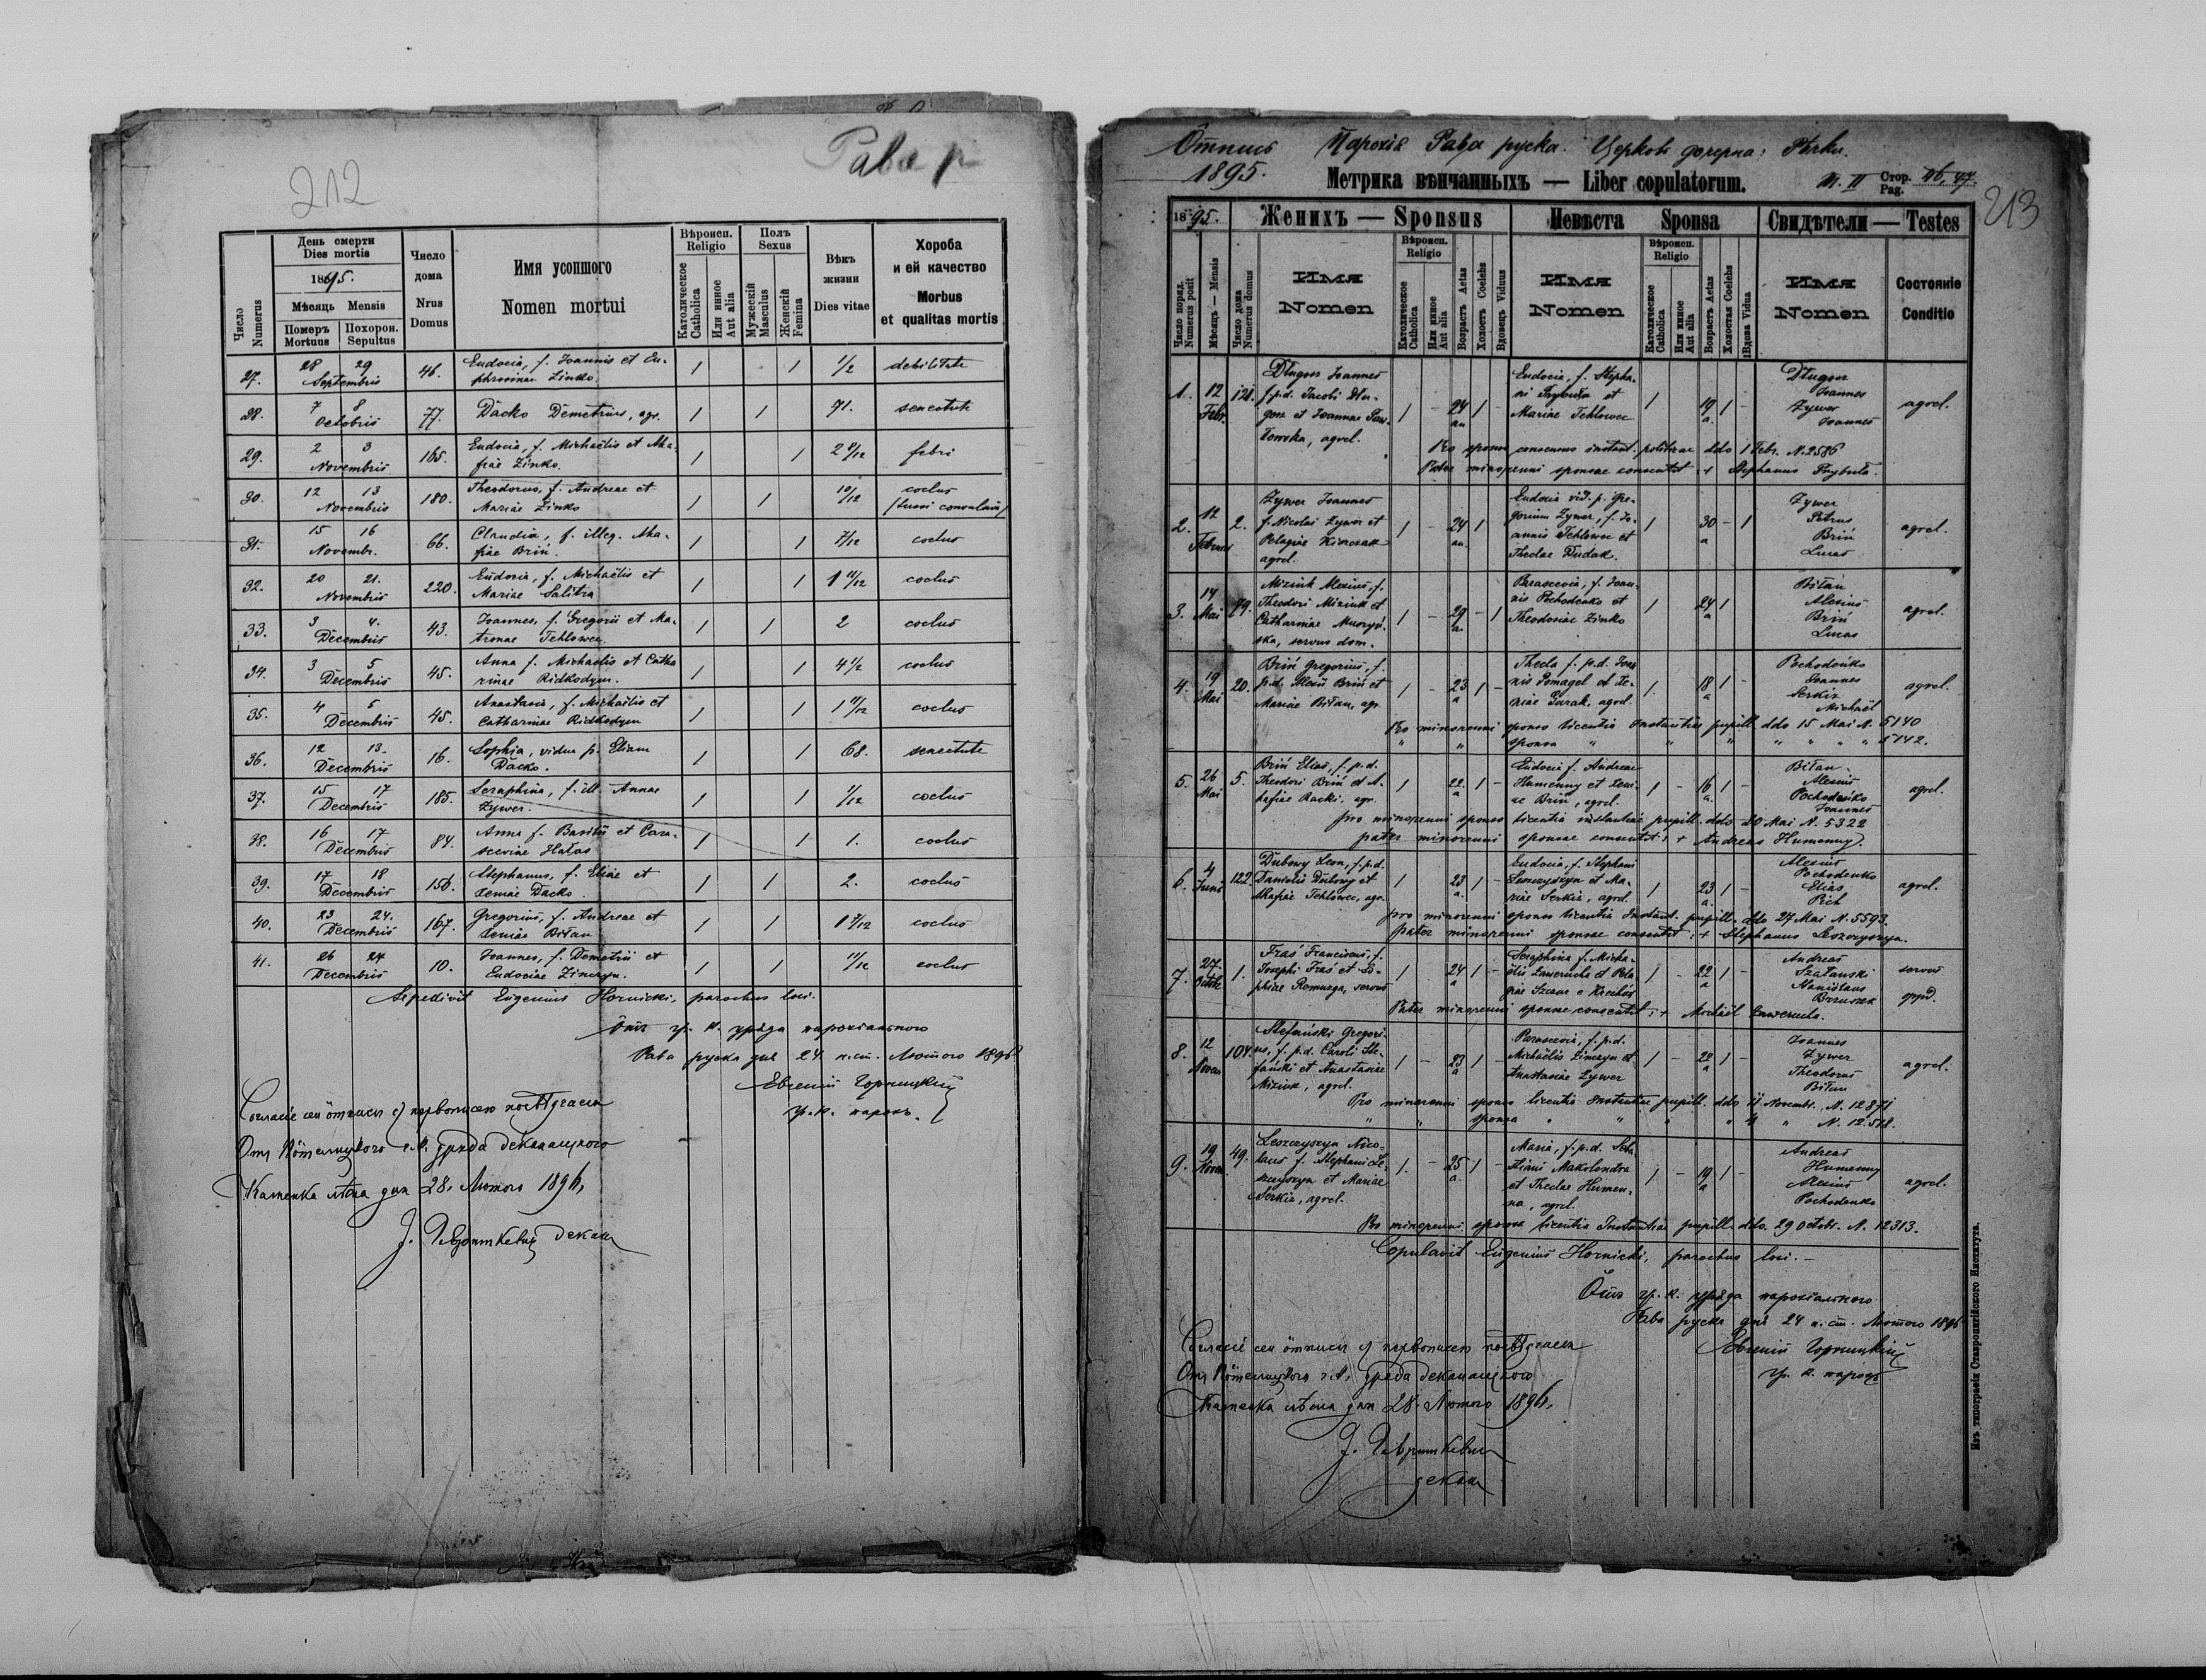 212
Рава р
Число
Numerus
День смерти
Dies mortis
1895.
Мѣсяць Mensis
Померъ
Mortuus
Похорон.
Sepultus
Число
дома
Nrus
Domus
Имя усопшого
Nomen mortui
Вѣроисп.
Religio
Католическое
Catholica
Или инное
Aut alia
Полъ
Sexus
Мужескій
Masculus
Женскій
Femina
Вѣкъ
жизни
Dies vitae
Хороба
и ей качество
Morbus
et qualitas mortis
27. 28 29 Septembris 46. Eudocia, f. Joannis et Eu-
phrosinae Zinko. / / 1/2 debilitate
28. 7 8 Octobris 77. Dacko Demetrius, agr. / / 71. senectute
29. 2 3 Novembris 165. Eudocia, f. Michaëlis et Aha-
fiae Zinko. / / 2 8/12 febri
30. 12 13 Novembris 180. Theodorus, f. Andreae et
Mariae Zinko / / 10/12 coclus
(tussi convulsiva)
31. 15 16 Novembr. 66. Claudia, f. illeg. Aha-
fiae Briń. / / 7/12 coclus
32. 20 21. Novembris 220. Eudocia, f. Michaëlis et
Mariae Salitra / / 1 11/12 coclus
33. 3 4. Decembris 43. Joannes, f. Gregorii et Ma-
tronae Tchlowec. / / 2 coclus
34. 3 5 Decembris 45. Anna f. Michaëlis et Catha
rinae Ridkodym. / / 4 1/2 coclus
35. 4 5 Decembris 45. Anastasia, f. Michaëlis et
Catharinae Ridkodym / / 1 11/12 coclus
36. 12 13. Decembris 16. Sophia, vidua p. Eliam
Dacko. / / 68. senectute
37. 15 17 Decembris 185. Seraphina, f. ill. Annae
Zywer. / / 1/12 coclus
38. 16 17 Decembris 84. Anna f. Basilii et Para-
sceviae Hałas / / 1. coclus
39. 17 18 Decembris 156. Stephanus, f. Eliae et
Xeniae Dacko. / / 2. coclus
40. 23 24. Decembris 167. Gregorius, f. Andreae et
Xeniae Biłan / / coclus
41. 26 27 Decembris 10. Joannes, f. Demetrii et
Eudociae Zinczyn. / / 11/12 coclus
Sepelivit Eugenius Hornicki, parochus loci.
Отъ гр. к. уряда парохіального
Рава руска дня 24 н. ст. Лютого 1896
Евгеній Горницкій
гр. к. парохъ.
Согласіе сеи отписи съ первописею посвѣдчаеся
Отъ Потелицкого г.к. уряда деканацкого
Каменка лѣсна дня 28. Лютого 1896,
декан
Отпись Парохія Рава руска. Церковь дочерна: Рѣчки.
1895. Метрика вѣнчанныхъ — Liber copulatorum. M. II Стор. Pag. 46, 47.
213
1895.
Женихъ — Sponsus
Невѣста Sponsa
Свидѣтели — Testes
Число поряд.
Numerus posit
Мѣсяцъ — Mensis
Число дома
Numerus domus
Имя
Nomen
Вѣроисп.
Religio
Католическое
Catholica
Или инное
Aut alia
Возрастъ Aetas
Холостъ Coelebs
Вдовецъ Viduus
Имя
Nomen
Вѣроисп.
Religio
Католическое
Catholica
Или инное
Aut alia
Возрастъ Aetas
Холостая Coelebs
Вдова Vidua
Имя
Nomen
Состояніе
Conditio
1. 12 Febr. 121. Długosz Joannes
f. p.d. Jacobi Dłu-
gosz et Joannae Paw-
łowska, agrcl. / - 24 an / - Eudocia, f. Stepha-
ni Hrybuła et
Mariae Tchlowec / 19 a. / - Długosz
Joannes
Zywer
Joannes agrcl.
Pro sponso consensus instant. politicae ddo 1 Febr. N. 2586
Pater minorenni sponsae consentit: + Stephanus Hrybuła.
2. 12 Februar 2. Zywer Joannes
f. Nicolai Zywer et
Pelagiae
agrcl. / - 24 an. / - Eudocia vid. p. Gre-
gorium Zywer, f. Jo-
annis Tchlowec et
Theclae Dudak. / 30 a - / Zywer
Petrus
Briń
Lucas agrcl.
3. 14 Mai 79. Miziuk Alexius, f.
Theodori Miziuk et
Catharinae
ska, servus dom. / - 29 a. - / Parascevia, f. Joan-
nis Pochodeńko et
Theodosiae Zinko / 24 a / Biłan
Alexius
Briń
Lucas agrcl.
4. 19 Mai 20. Briń Gregorius, f.
p.d. Alexii Briń et
Mariae Biłan, agr. / - 23 a / - Thecla f. p.d. Joan
nis Pomagel et Xe-
niae Garak, agrcl. / 18 a / - Pochodeńko
Joannes
Serkiz
Michaël agrcl.
Pro minorenni sponso licentia Instantiae pupill. ddo 15 Mai N. 5140
" " sponsa " " " " " " " 5142.
5. 26 Mai 5. Briń Elias, f. p.d.
Theodori Briń et A-
hafiae Racki. agr. / 22 a / - Eudocia f. Andreae
Humenny et Xeni-
ae Briń, agrcl. / - 16 a. / - Biłan
Alexius
Pochodeńko
Joannes agrcl.
pro minorenni sponso licentia instantiae pupill. ddo 20 Mai N. 5322
pater minorenni sponsae consentit: + Andreas Humenny.
6. 4 Juni 122. Dubowy Leon, f. p.d.
Danielis Dubowy et
Ahafiae Tchlowec, agr. / 23 a. / - Eudocia, f. Stephani
Leszczyszyn et Ma-
riae Serkiz, agrcl. / 23 a. / - Alexius
Pochodenko
Elias
Pich agrcl.
pro minorenni sponso licentia Instant. pupill. ddo 27 Mai N. 5593.
Pater minorenni sponsae consentit: + Stephanus Leszczyszyn.
7. 27. Octobr 1. Fraś Franciscus, f.
Josephi Fraś et So-
phiae Romuzga, servus / 24 a / - Seraphina f. Micha-
ëlis Zawerucha et Pela
giae / - 22 a / - Andreas
Szałanski
Stanislaus
Brzuszek servus
oppid.
Pater minorenni sponsae consentit: + Michaël Zawerucha.
8. 12 Novem 104. Stefański Gregori-
us, f. p.d. Caroli Ste-
fański et Anastasiae
Miziuk, agrcl. / - 23 a / - Parascevia, f. p.d.
Michaëlis Zinczyn et
Anastasiae Zywer / - 22 a / - Joannes
Zywer
Theodorus
Biłan agrcl.
Pro minorenni sponso licentia Instantiae pupill. ddo 11 Novembr. N. 12871
" " sponsa " " " " " N. 12.518.
9. 19 Novem 49. Leszczyszyn Nico-
laus f. Stephani Le-
szczyszyn et Mariae
Serkiz, agrcl. / - 25 a. / - Maria, f. p.d. Seba
stiani Makolondra
et Theclae Humen-
na, agrcl. / - 19 a / - Andreas
Humenny
Alexius
Pochodenko agrcl.
Pro minorenni sponsa licentia Instantiae pupill. ddo. 29 Octobr. N. 12313.
Copulavit Eugenius Hornicki, parochus loci. —
Отъ гр. к. уряда парохіального
Рава руска дня 24 н. ст. Лютого 1896
Евгеній Горницкій
гр. к. парохъ
Согласіе сеи отписи съ первописею посвѣдчаеся
Отъ Потелицкого г.к. уряда деканацкого
Каменка лѣсна дня 28. Лютого 1896,
декан
Изъ типографіи Ставропигійского Института.